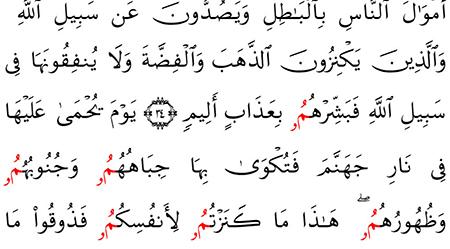 أَمۡوَٰلَ ٱلنَّاسِ بِٱلۡبَٰطِلِ وَيَصُدُّونَ عَن سَبِيلِ ٱللَّهِ
وَٱلَّذِينَ يَكۡنِزُونَ ٱلذَّهَبَ وَٱلۡفِضَّةَ وَلَا يُنفِقُونَهَا فِي
سَبِيلِ ٱللَّهِ فَبَشِّرۡهُمُۥ بِعَذَابٍ أَلِيمٖ ٣٤ يَوۡمَ يُحۡمَىٰ عَلَيۡهَا
فِي نَارِ جَهَنَّمَ فَتُكۡوَىٰ بِهَا جِبَاهُهُمُۥ وَجُنُوبُهُمُۥ
وَظُهُورُهُمُۥۖ هَٰذَا مَا كَنَزۡتُمُۥ لِأَنفُسِكُمُۥ فَذُوقُواْ مَا